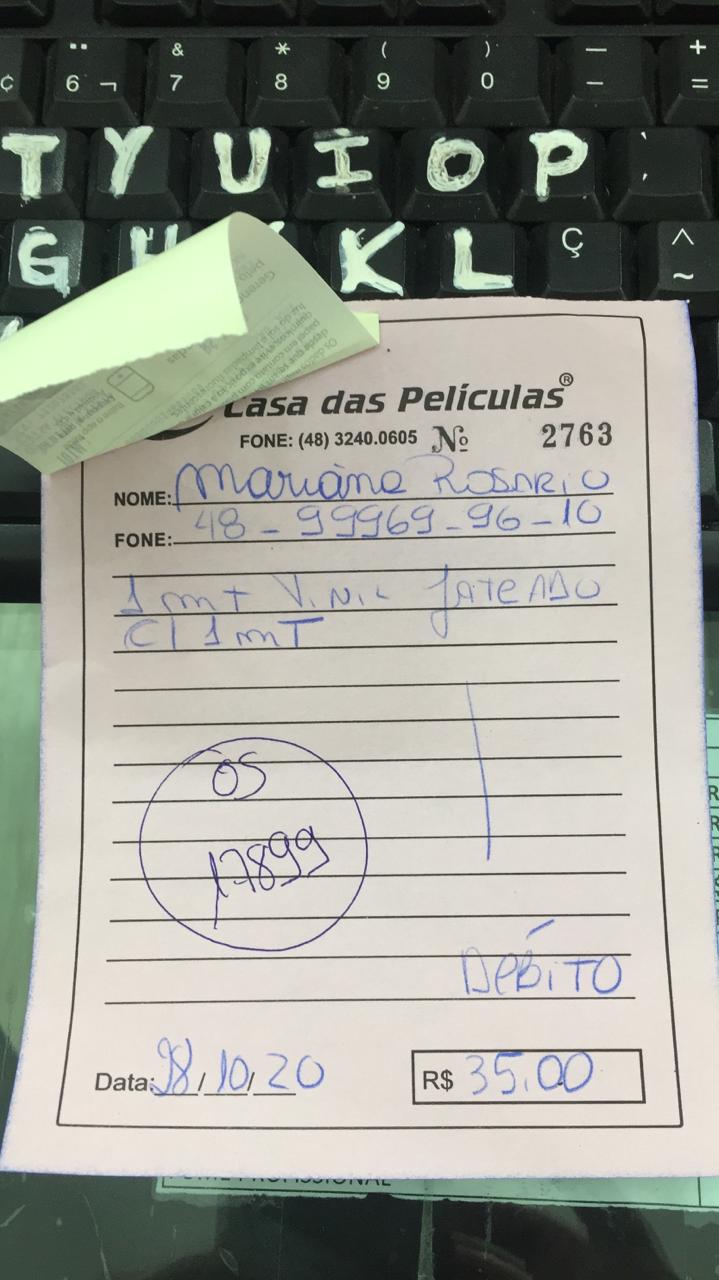 ¢ 6 ¨ ¬ 7 & 8 * 9 ( 0 ) - — = +
T Y U I O P
G H K L Ç ^ ~
Casa das Películas®
FONE: (48) 3240.0605 Nº 2763
NOME: Mariane Rosario
FONE: 48-99969-96-10
1 mt Vinil jateado
C/ 1 mT
OS
17899
DÉBITO
Data: /10/20 R$ 35.00